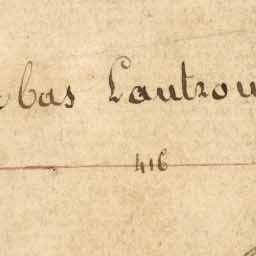 bas Lautrou
416